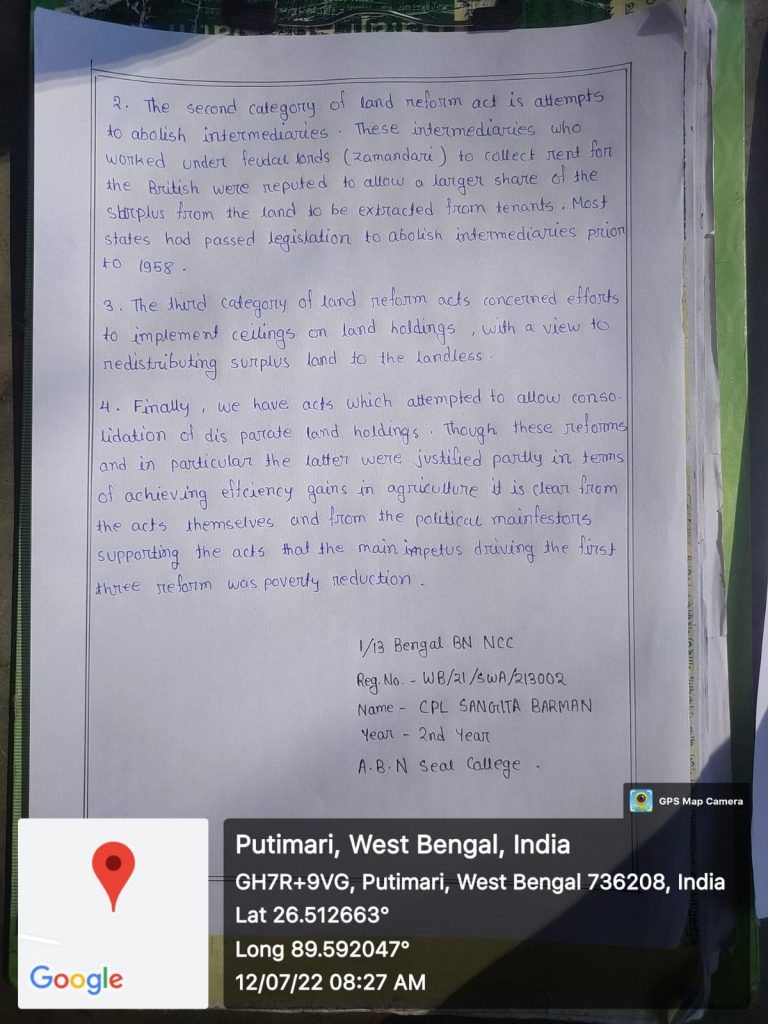 2. The second category of land reform act is attempts
to abolish intermediaries. These intermediaries who
worked under feudal lords (zamandari) to collect rent for
the British were reputed to allow a larger share of the
surplus from the land to be extracted from tenants. Most
states had passed legislation to abolish intermediaries prior
to 1958.
3. The third category of land reform acts concerned efforts
to implement ceilings on land holdings, with a view to
redistributing surplus land to the landless.
4. Finally, we have acts which attempted to allow conso-
lidation of dis parate land holdings. Though these reforms
and in particular the latter were justified partly in terms
of achieving effciency gains in agriculture it is clear from
the acts themselves and from the political mainfestors
supporting the acts that the main impetus driving the first
three reform was poverty reduction.
1/13 Bengal BN NCC
Reg. No. - WB/21/SWA/213002
Name - CPL SANGITA BARMAN
Year - 2nd Year
A.B.N Seal College.
GPS Map Camera
Putimari, West Bengal, India
GH7R+9VG, Putimari, West Bengal 736208, India
Lat 26.512663°
Long 89.592047°
12/07/22 08:27 AM
Google